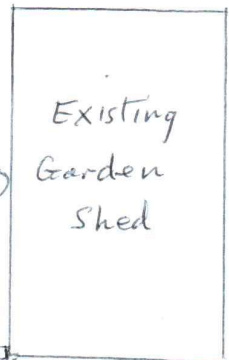 Existing
Garden
Shed